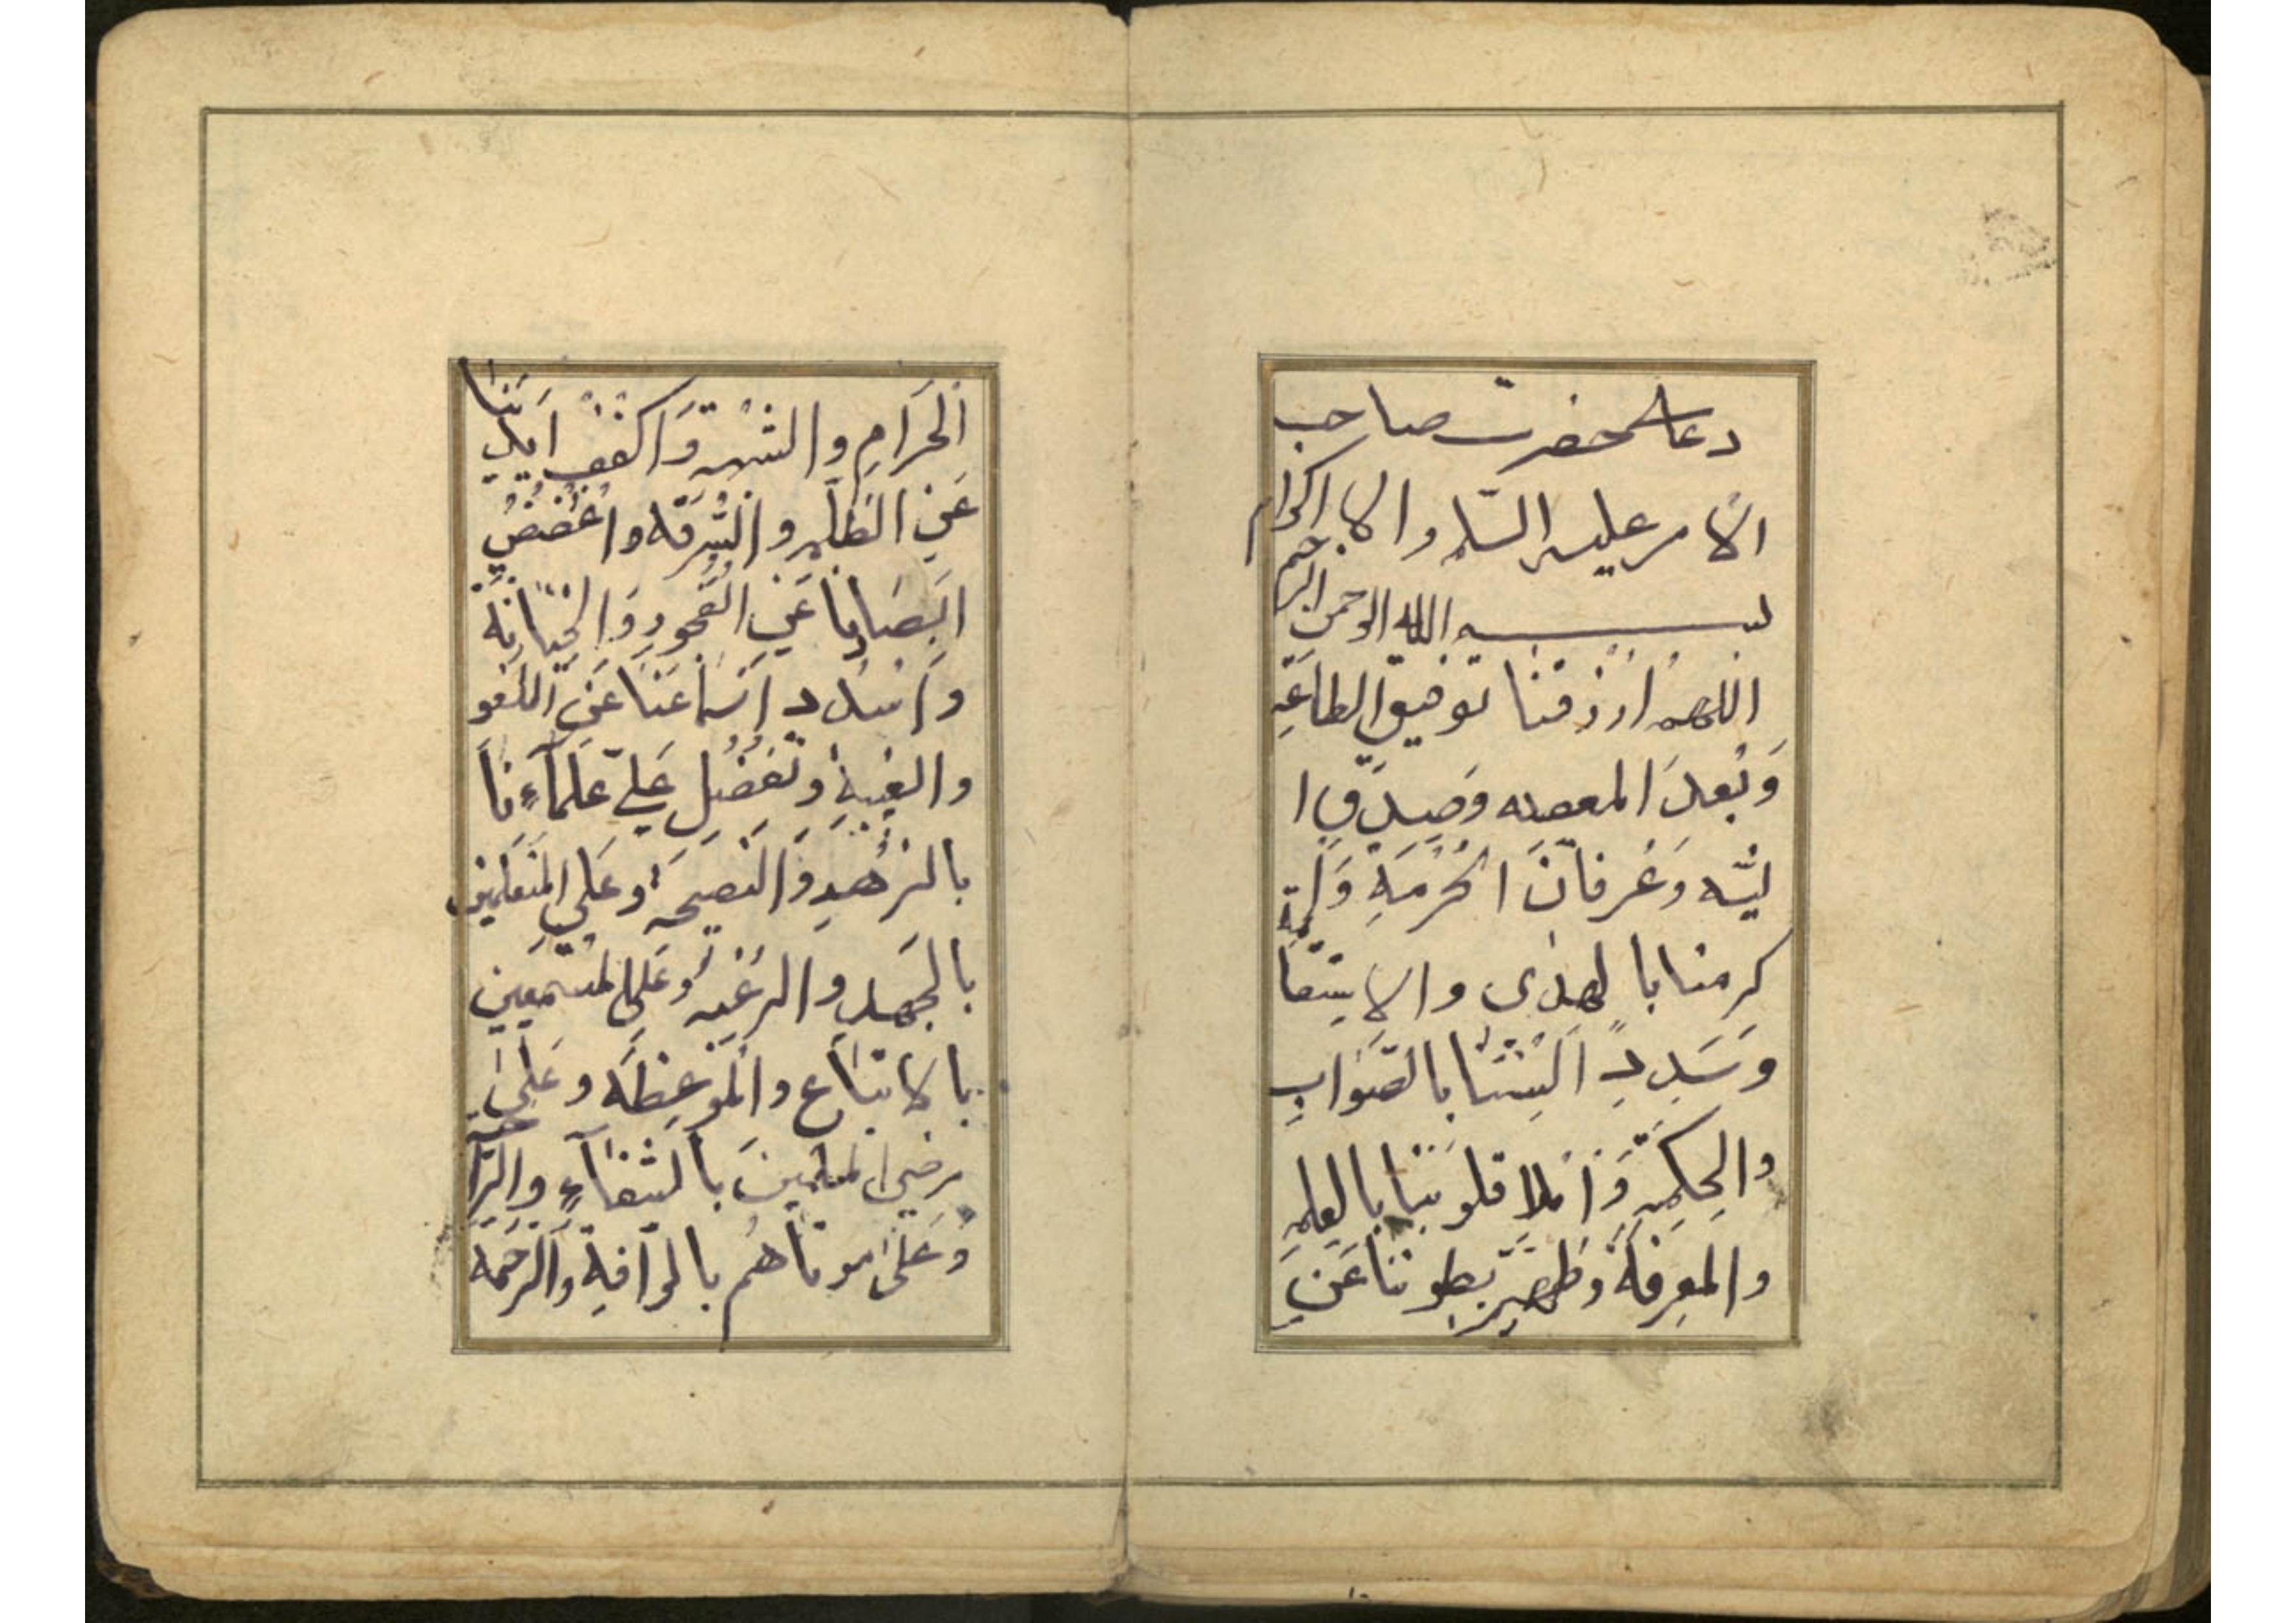 دعای حضرت صاحب
الامر علیه السلم والاکرام
بسم الله الرحمن الرحیم
اللهم ارزقنا توفیق الطاعه
وَبُعدَ المعصیه وَصِدقِ ا
لنیّه وَعُرفانَ الحُرمَهِ وَا
کرمنا بالهدی والاستقامة
وَسَدِدِ السِنَتنا بالصَوابِ
والحِکمةِ وَاملا قلوبَنا بالعِلمِ
والمَعرِفَةُ وَطَهِر بُطونَنا عَنِ
الحَرَامِ والشبهه وَاکفُف ایدینا
عَنِ الظُلمِ والسُرقَه واغضُض
ابصَارنا عَنِ الفُجورِ وَالخِیَانَة
واسدد اسماعنا عَنِ اللَغو
والغیبةِ وتَفَضَل عَلی عُلَماءِنا
بالزُهدِ وَالنَصیحَه وعَلَی المُتَعَلِمین
بالجَهدِ والرَغبه وعَلَی المستمعین
بالاتباعِ والموَعِظَه وعَلیٰ
مرضی المسلمینَ بالشفاءِ والراحة
وَعَلیٰ موتاهُم بالرافةِ والرَحمَة